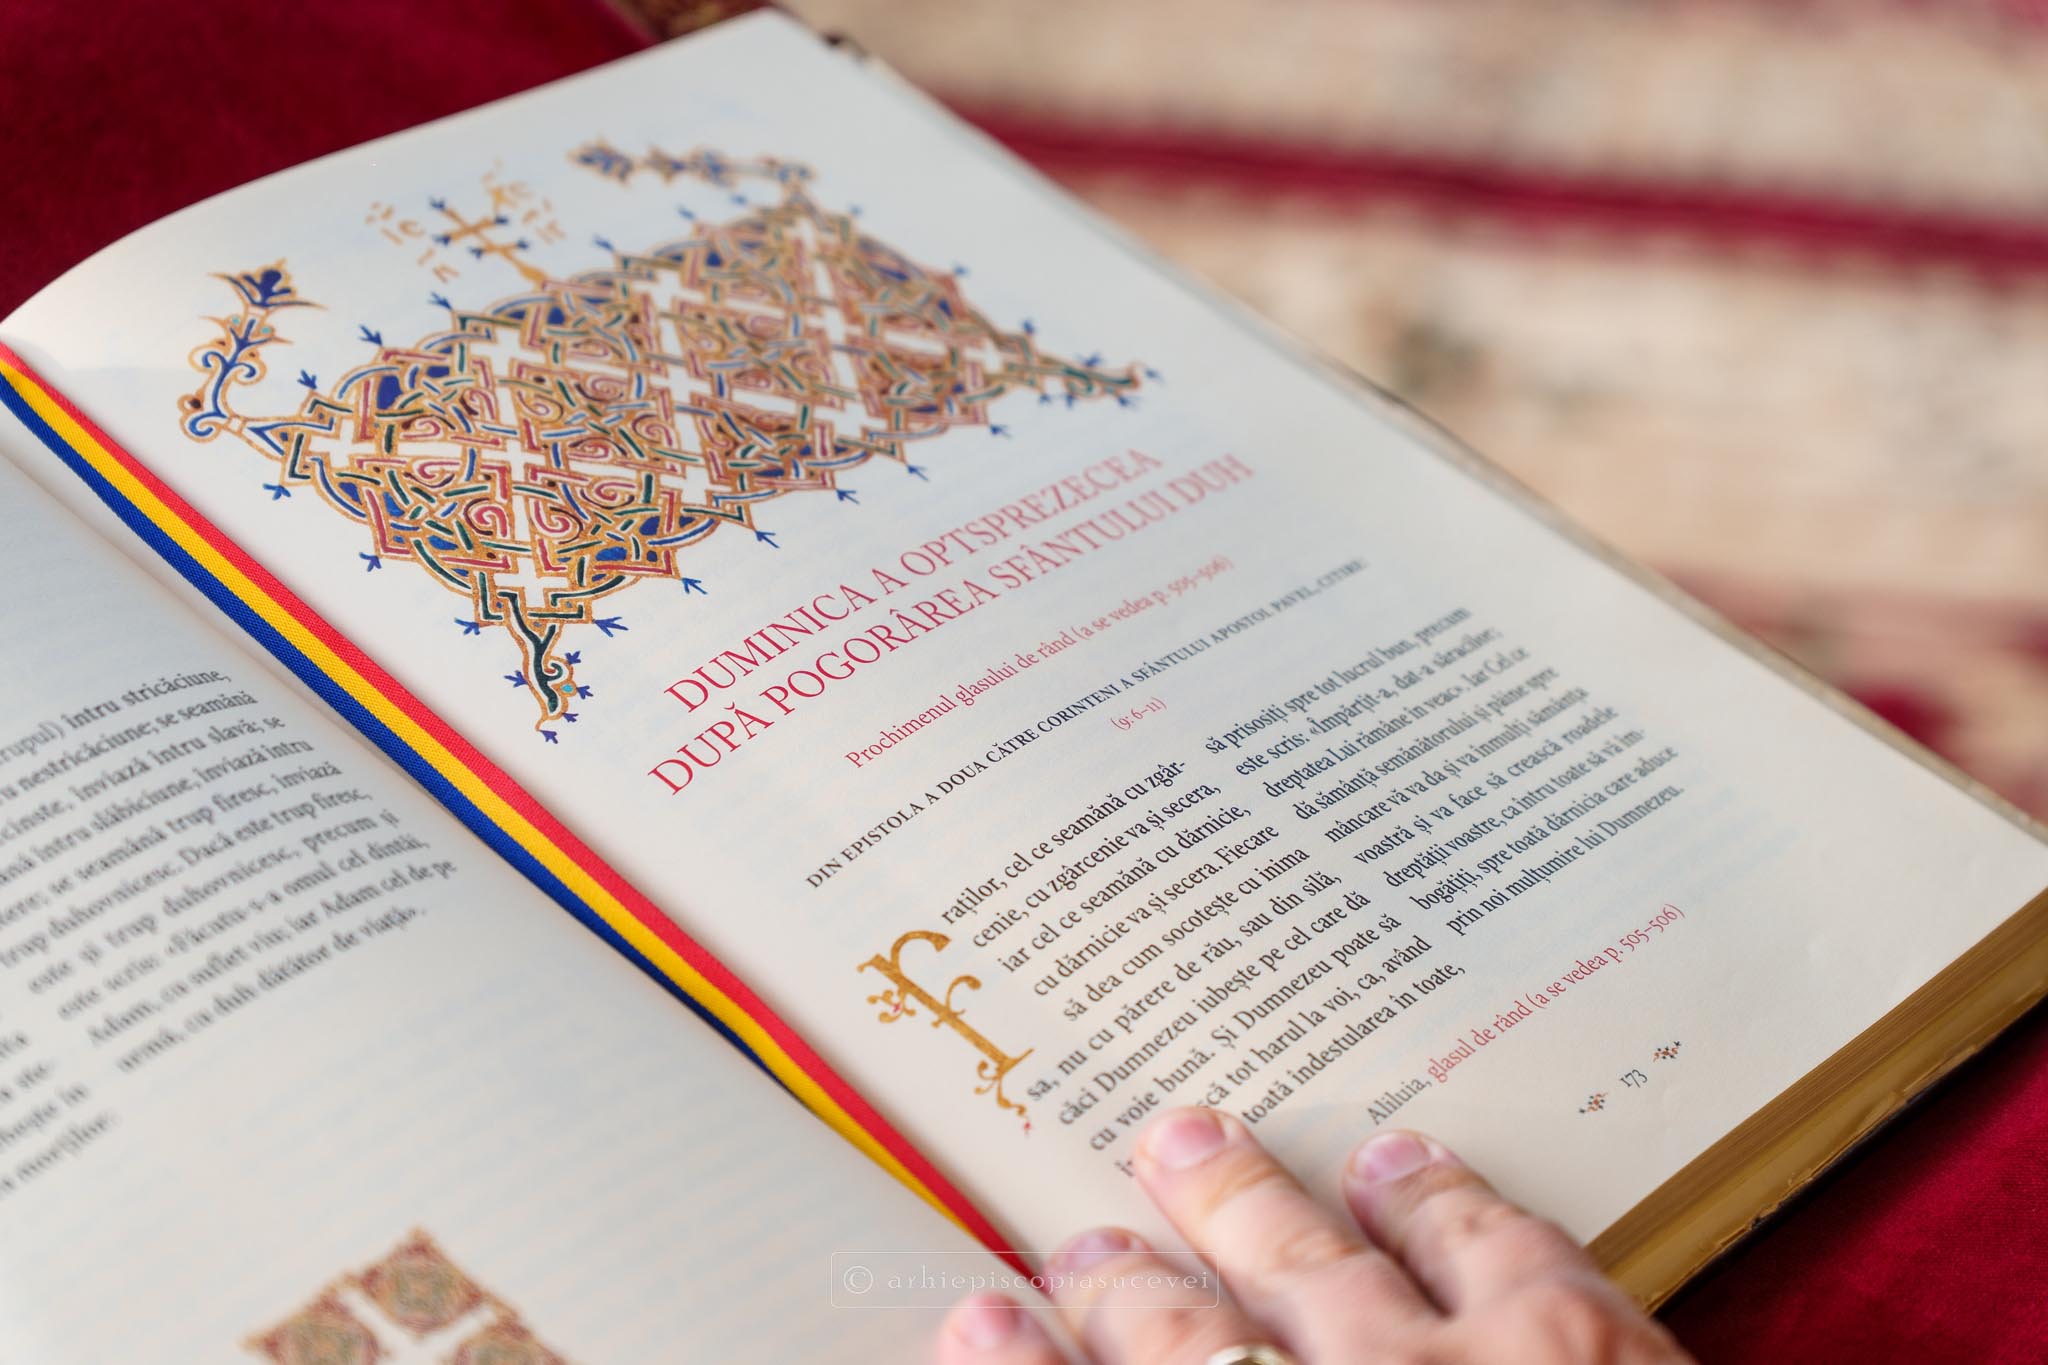 rupul) întru stricăciune,
nestricăciune; se seamănă
cinste, înviază întru slavă; se
întru slăbiciune, înviază întru
se seamănă trup firesc, înviază
trup duhovnicesc. Dacă este trup firesc,
este și trup duhovnicesc, precum și
este scris: «Făcutu-s-a omul cel dintâi,
Adam, cu suflet viu; iar Adam cel de pe
urmă, cu duh dătător de viață».
în
morților
IC XC
DUMINICA A OPTSPREZECEA
DUPĂ POGORÂREA SFÂNTULUI DUH
Prochimenul glasului de rând (a se vedea p. 505–506)
DIN EPISTOLA A DOUA CĂTRE CORINTENI A SFÂNTULUI APOSTOL PAVEL, CITIRE:
(9: 6–11)
Fraților, cel ce seamănă cu zgâr-
cenie, cu zgârcenie va și secera,
iar cel ce seamănă cu dărnicie,
cu dărnicie va și secera. Fiecare
să dea cum socotește cu inima
sa, nu cu părere de rău, sau din silă,
căci Dumnezeu iubește pe cel care dă
cu voie bună. Și Dumnezeu poate să
că tot harul la voi, ca, având
toată îndestularea în toate,
să prisosiți spre tot lucrul bun, precum
este scris: «Împărțit-a, dat-a săracilor;
dreptatea Lui rămâne în veac». Iar Cel ce
dă sămânță semănătorului și pâine spre
mâncare vă va da și va înmulți sămânța
voastră și va face să crească roadele
dreptății voastre, ca întru toate să vă îm-
bogățiți, spre toată dărnicia care aduce
prin noi mulțumire lui Dumnezeu.
Aliluia, glasul de rând (a se vedea p. 505–506)
173
© arhiepiscopiasucevei